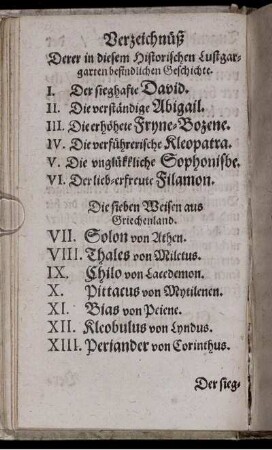 Verzeichnüß
Derer in diesem Historischen Lustgar-
garten befindlichen Geschichte.
I. Der sieghafte David.
II. Die verständige Abigail.
III. Die erhöhete Fryne-Bozene.
IV. Die verführerische Kleopatra.
V. Die vnglükkliche Sophonisbe.
VI. Der lieb-erfreute Filamon.
Die sieben Weisen aus
Griechenland.
VII. Solon von Athen.
VIII. Thales von Miletus.
IX. Chilo von Lacedemon.
X. Pittacus von Mytilenen.
XI. Bias von Peiene.
XII. Kleobulus von Lyndus.
XIII. Periander von Corinthus.
Der sieg-